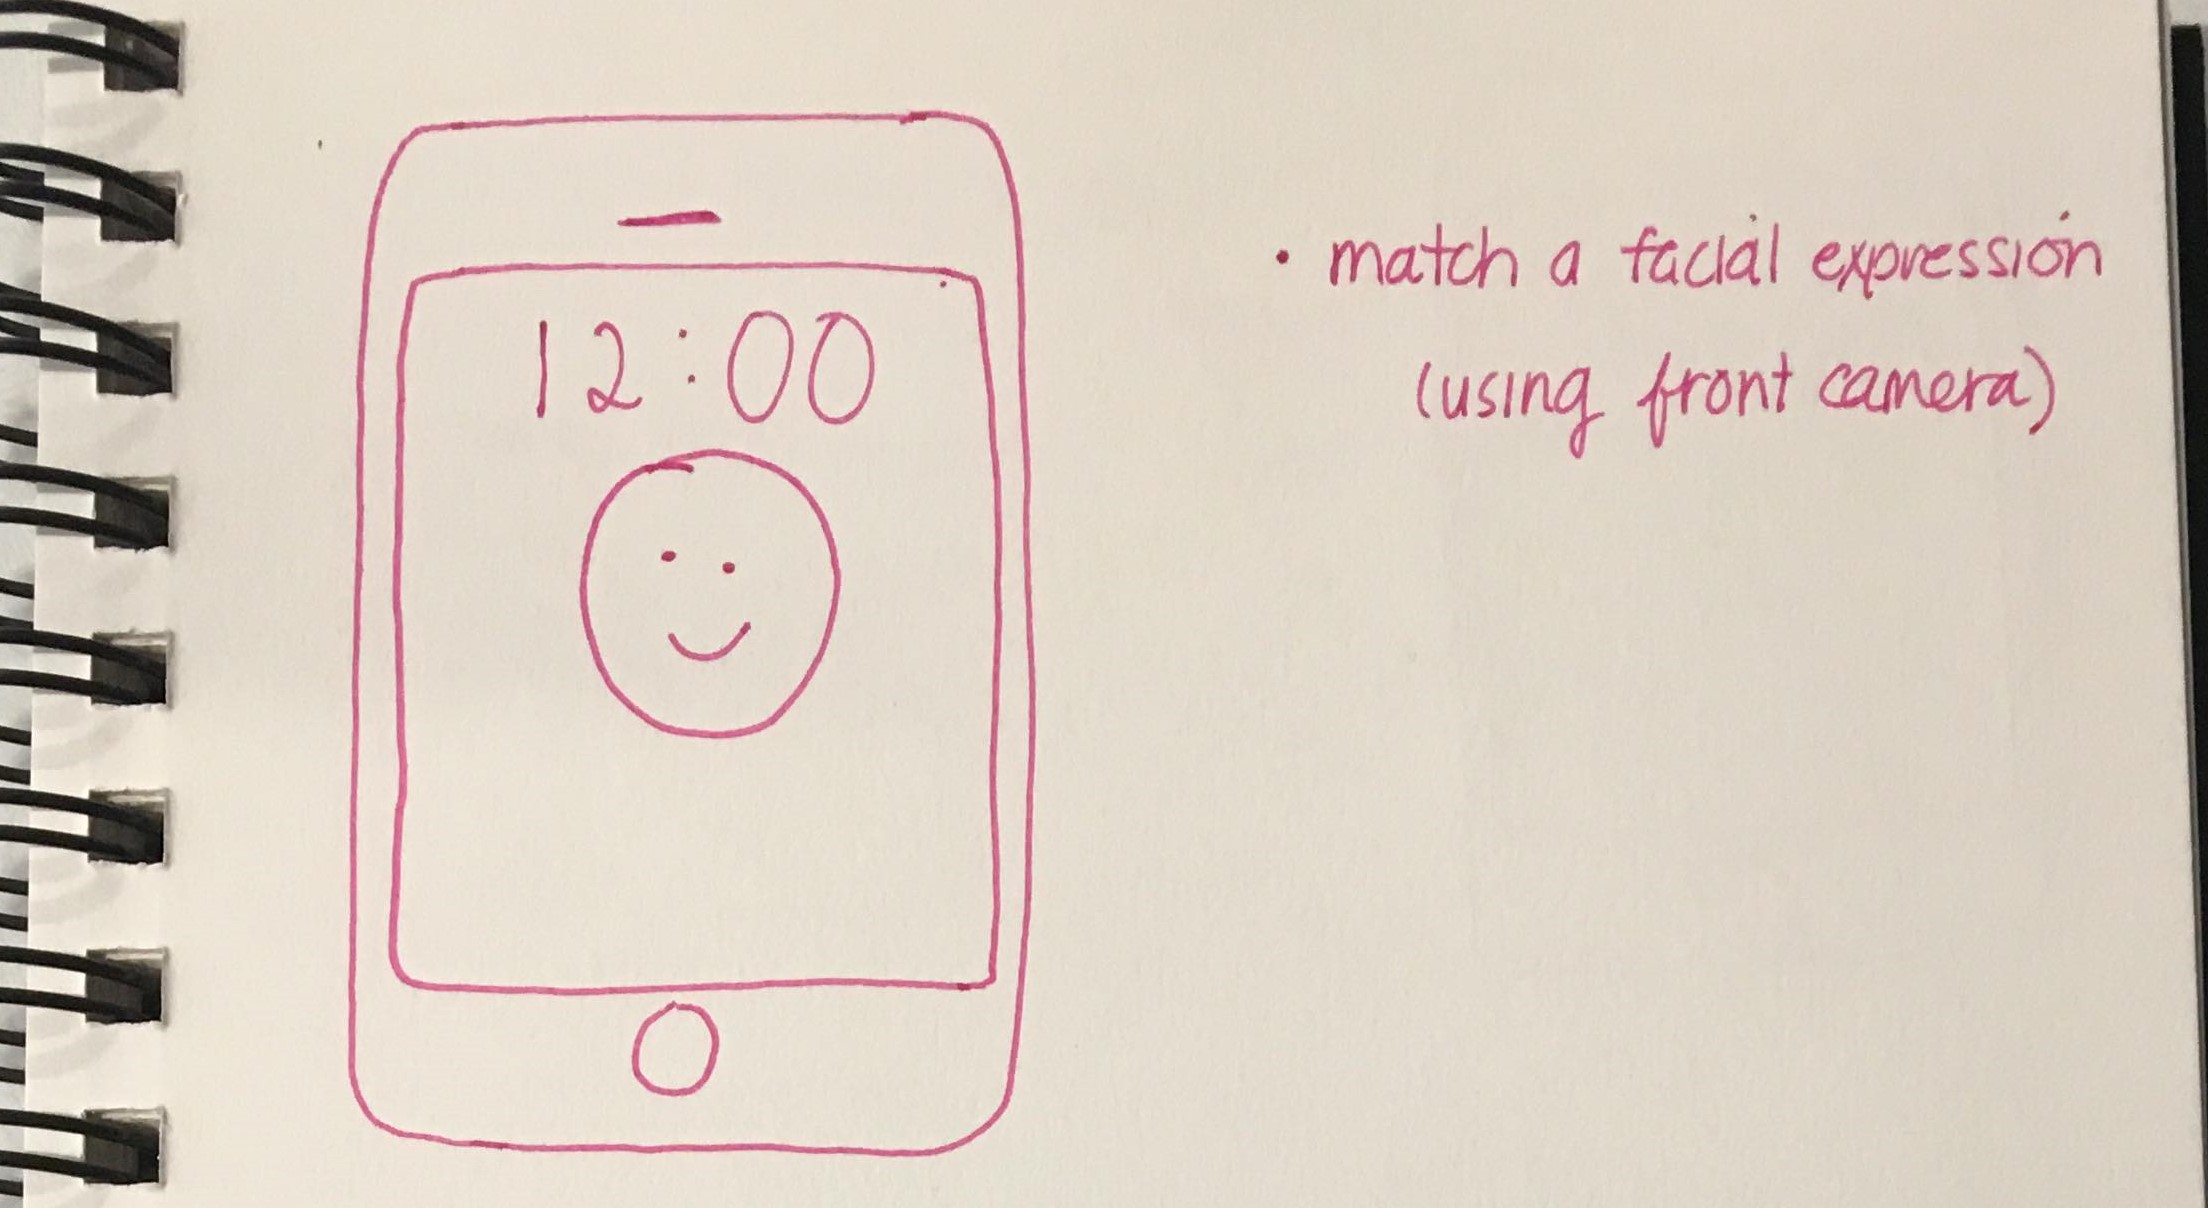 12:00
· match a facial expression
(using front camera)